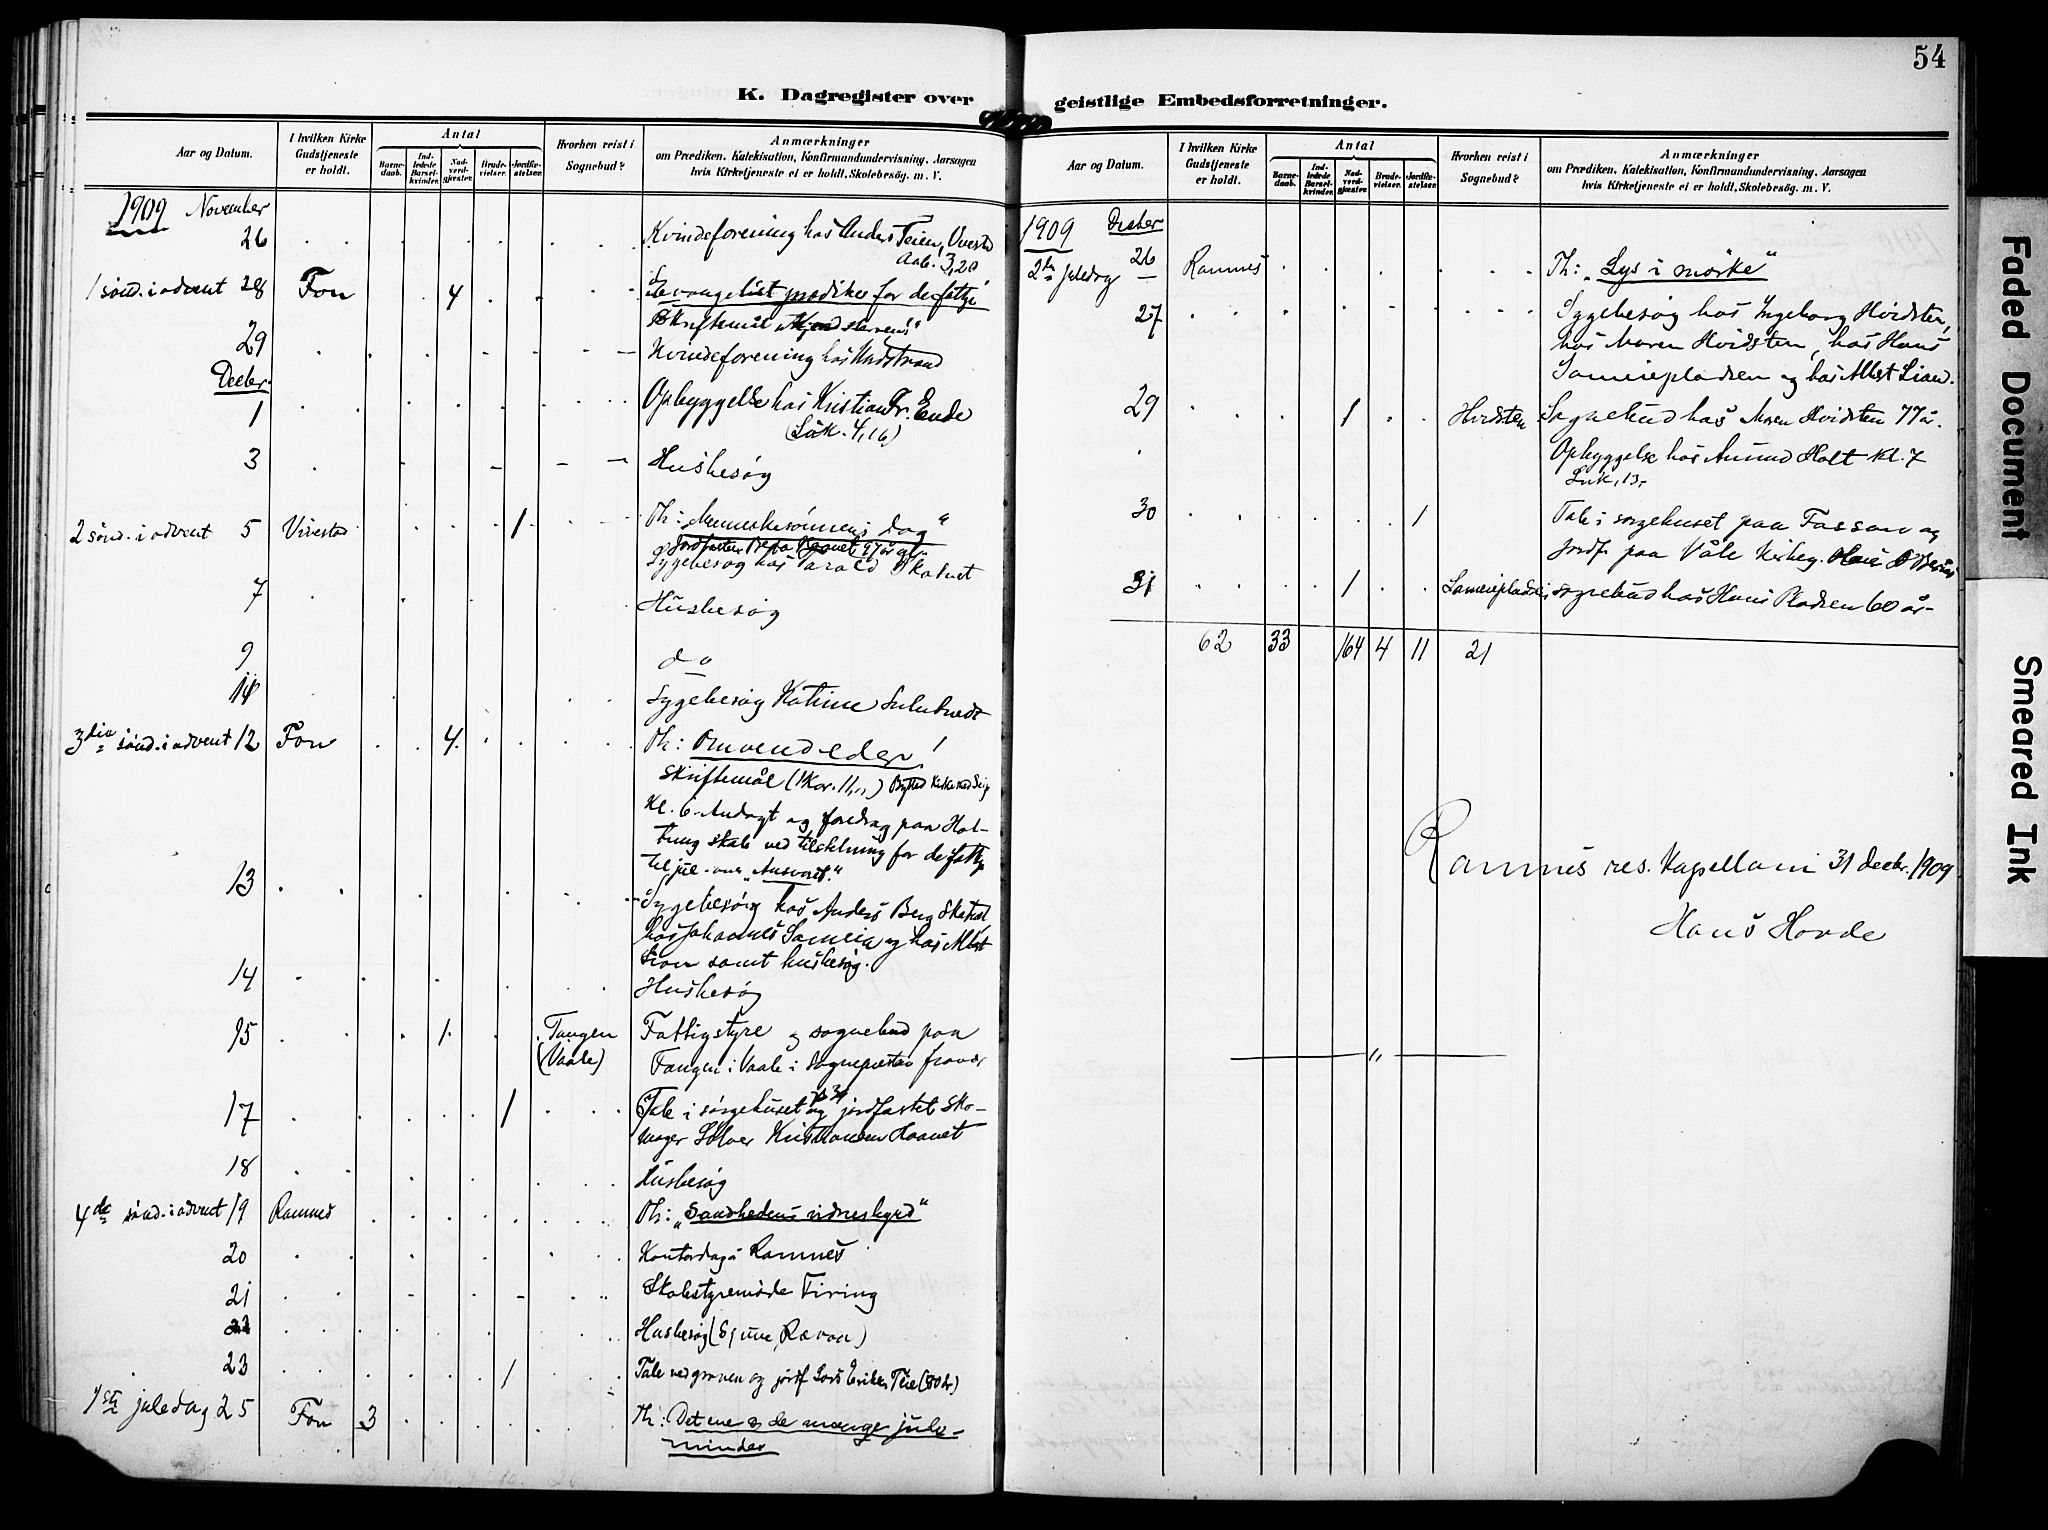 54
K. Dagregister over geistlige Embedsforretninger.
Aar og Datum.
I hvilken Kirke Gudstjeneste er holdt.
Antal
Barne-daab.
Ind-ledede Barsel-kvinder.
Nad-verd-gjæster.
Brude-vielser.
Jordfæ-stelser.
Hvorhen reist i Sognebud?
Anmærkninger
om Prædiken, Katekisation, Konfirmandundervisning, Aarsagen
hvis Kirketjeneste ei er holdt, Skolebesøg. m. V.
1909 November
26 Kvindeforening hos Anders Teien, Vivestad
Aab. 3,20
1 sønd. i advent 28 Fon 4 Evangeliet prædikes for de fattige
Skriftemål
29 Kvindeforening hos
Decbr.
1 Opbyggelse hos Kristian Fr. Ende
(Luk. 4,16)
3 Husbesøg
2 sønd. i advent 5 Vivestad 1 Th: Menneskesønnens dag"
Sygebesøg hos Harald Skatvet
7 Husbesøg
9 do
11 Sygebesøg Katrine
3die sønd. i advent 12 Fon 4 Th: Omvend eder!
Skriftemål (1 Kor. 11,
Kl. 6 Andagt og foredrag paa Hol-
tung skole ved tilstelning for de fattige
til jul - over „Ansvaret."
13 Sygebesøg hos Anders Berg Skatvet
hos Johannes Sameia og hos Albert
Lian samt husbesøg.
14 Husbesøg
15 1 Tangen Fattigstyre og sognebud paa
(Vaale) Tangen i Vaale i Sognepresten fravær
17 1 Tale i sørgehuset og jordfæstet Sko-
mager Kristiansen Haavet
18 Husbesøg
4de sønd. i advent 19 Ramnes Th: „Sandhedens vidnesbyrd"
20 Kontordag i Ramnes
21 Skolestyremøde Firing
22 Husbesøg (
23 1 Tale ved graven og jordf.
1ste juledag 25 Fon 3 Th: Det ene og de mange jule-
minder
Aar og Datum.
I hvilken Kirke Gudstjeneste er holdt.
Antal
Barne-daab.
Ind-ledede Barsel-kvinder.
Nad-verd-gjæster.
Brude-vielser.
Jordfæ-stelser.
Hvorhen reist i Sognebud?
Anmærkninger
om Prædiken, Katekisation, Konfirmandundervisning, Aarsagen
hvis Kirketjeneste ei er holdt, Skolebesøg. m. V.
1909 Decber
2den juledag 26 Ramnes Th: „Lys i mørke"
27 Sygebesøg hos Ingeborg Hvidsten,
hos Maren Hvidsten, hos Hans
Sameiepladsen og hos Albert Lian.
29 1 Hvidsten Sognebud hos Maren Hvidsten 77 år.
Opbyggelse hos Amund Holt kl. 7
Luk. 13.
30 1 Tale i sørgehuset paa Fossan og
jordf. paa Våle Kirkeg.
31 1 Sameiepladsen Sognebud hos Hans Pladsen 60 år
62 33 164 4 11 21
Ramnes res. Kapellani 31 decbr. 1909
Hans Horde
Faded Document
Smeared Ink